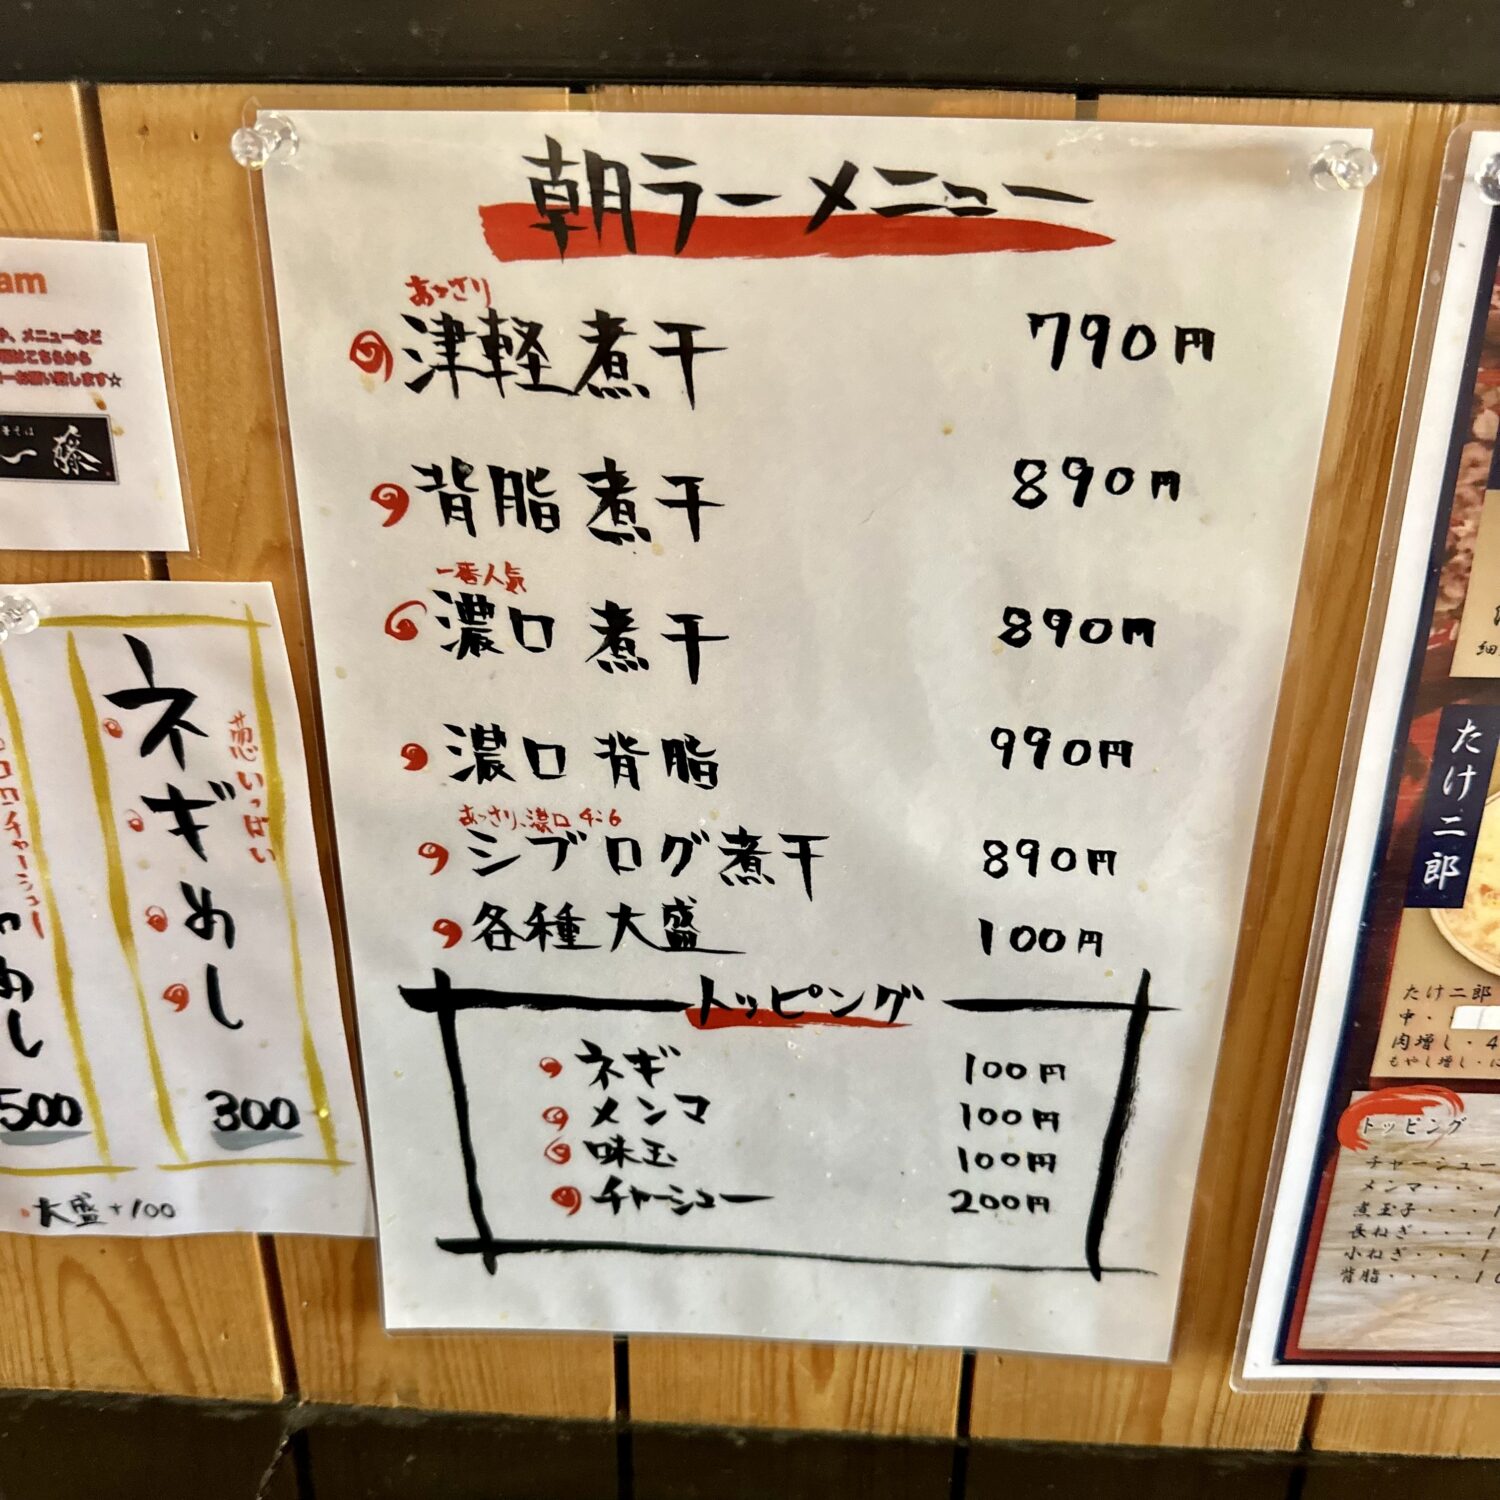 朝ラーメニュー
あっさり
津軽煮干 790円
背脂煮干 890円
一番人気
濃口煮干 890円
濃口背脂 990円
あっさり、濃口 4:6
シブログ煮干 890円
各種大盛 100円
トッピング
ネギ 100円
メンマ 100円
味玉 100円
チャーシュー 200円
am
メニューなど
はこちらから
お願い致します☆
一藤
葱いっぱい
ネギめし
300
チャーシュー
めし
500
大盛+100
たけ二郎
たけ二郎
中・
肉増し・4
もやし増し・に
トッピング
チャーシュー
メンマ・・・
煮玉子・・・1
長ねぎ・・・1
小ねぎ・・・1
背脂・・・・10